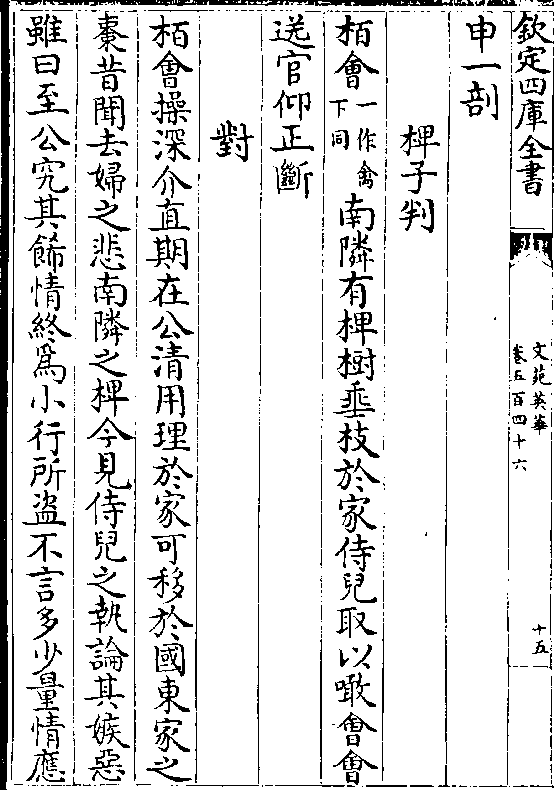 欽定四庫全書
文苑英華
卷五百四十六
十五
申一剖
椑子判
栢會一作禽下同南隣有椑樹垂枝於家侍兒取以噉會會
送官仰正斷
對
栢會操深介直期在公清用理於家可移於國東家之
棗昔聞去婦之悲南隣之椑今見侍兒之執論其嫉惡
雖曰至公究其餙情終爲小行所盗不言多少量情應